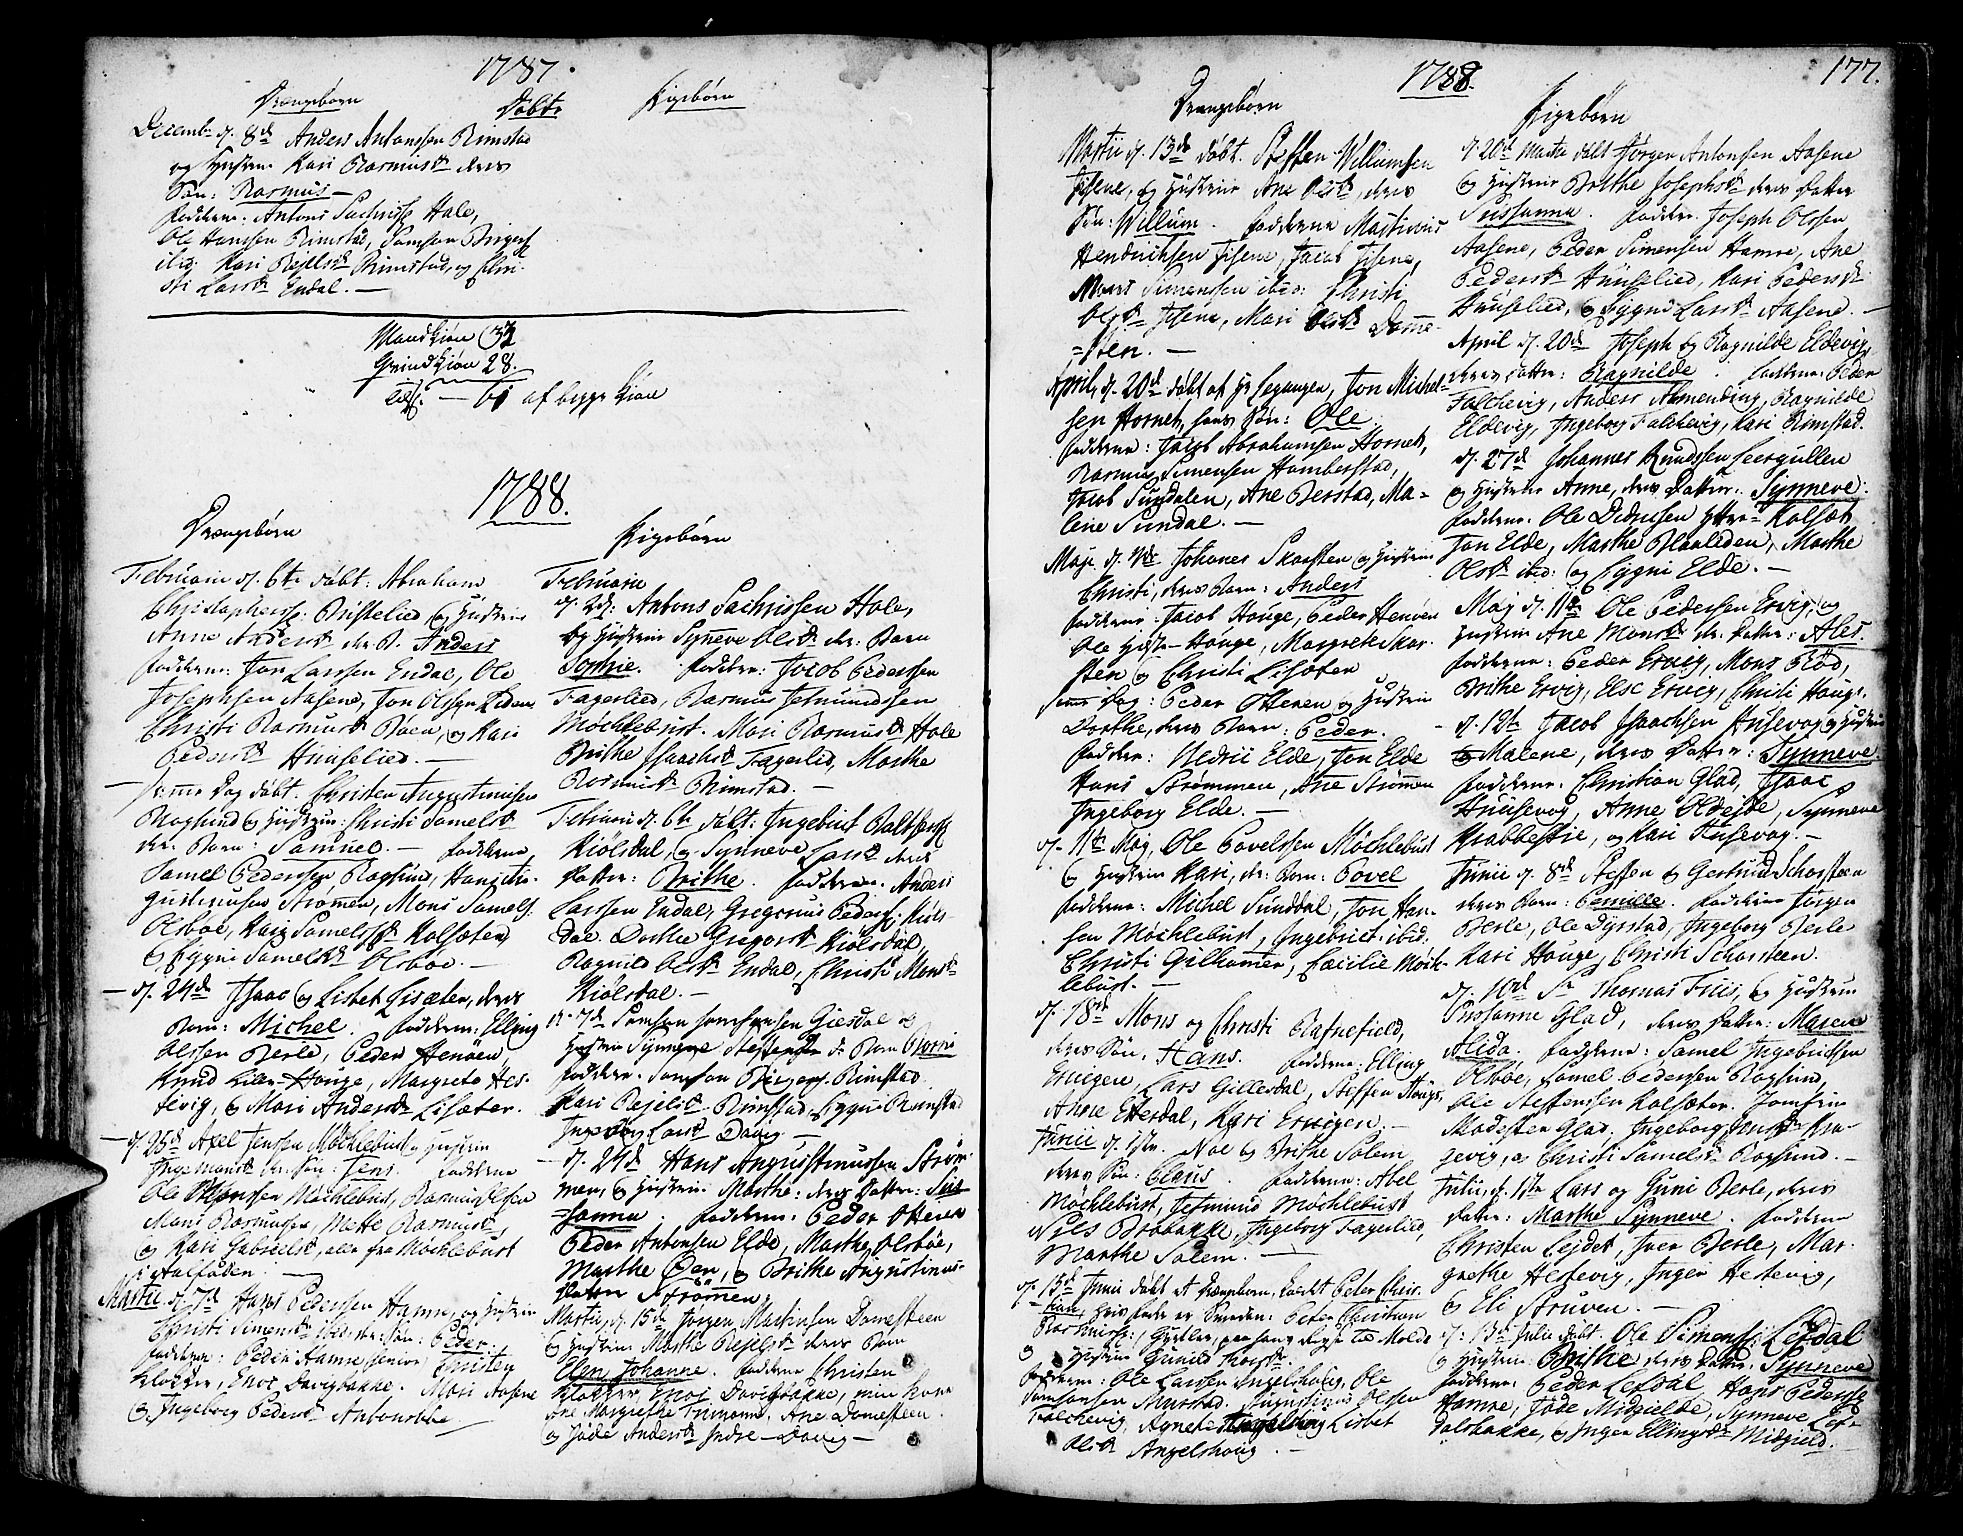 1787.
Drængebørn Døbte Pigebørn
Decembr d. 8de Anders Antonssen Rimstad
og Hustrue Kari Rasmusdr deres
Søn: Rasmus —
Fadderne: Antons Sachrisse Hole,
Ole Hanssen Rimstad, Samson Birgerss
ibid: Kari Rejelsdr Rimstad, og Chri-
sti Larsdr Endal. —
Mandkiøn 33
Qvindkiøn 28.
61 af begge Kiøn
1788.
Drængebørn
Februarii d. 6te døbt: Abraham
Christophersse: Bristelied og Hustrue
Anne Andersdr der. B. Anders
Fadderne: Jon Larssen Endal, Ole
Josephsen Aasene, Jon Olssen
Christi Rasmusdr Bøen, og Kari
Pedersdr Hunselied. —
— samme Dag døbt. Christen Augustinussen
Rogsund og Hustrue: Christi Samelsdr
der. Barn: Samuel. — Fadderne
Samel Pederssen Rogsund, Hans Au-
gustinussen Strømen, Mons Samels.
Olsbøe, Kari Samelsdr Kolsæter,
og Siggni Samelsdr Olsbøe. —
— d. 24de Isaac og Lisbet Lisæter, deres
Barn: Michel. Fadderne: Elling
Olssen Berle, Peder Henøen,
Knud Lille-Houge, Margrete Hes-
tevig, og Mari Andersdr Lisæter.
— d. 25de Axel Jenssen Møchlebust og Hustrue
Søn: Jens. Fadderne
Ole Monssen Møchlebust, Rasmus Olsen
Mons Rasmussen, Mette Rasmusdr,
og Kari Gabrielsdr, alle fra Møchlebust
i Aalfoden. —
Martii d. 7de Hans Pederssen Hamne, og Hustrue
Christi Simensdr ibid: der: Søn: Peder.
Fadderne: Peder Hamne senior, Christen
Klokker, Enoc Davigbakke. Mari Aasene
og Ingeborg Pedersdr Antonebbe
Pigebørn
Februarii
d. 2den: Antons Sachrissen Hole,
og Hustrue Synneve Olsdr der: Barn
Sophie. Fadderne: Jacob Pederssen
Fagerlied, Rasmus Jetmundssen
Møchlebust. Mari Rasmusdr Hole
Brithe Isaachsdr Fagerlied, Marthe
Rasmusdr Rimstad. —
Februarii d. 6te døbt: Ingebricht Baltserss
Kiølsdal, og Synneve Larsdr deres
Datter: Brithe. Fadderne. Anders
Larssen Endal, Gregorius Pederss: Kiøls-
dal. Dorthe Gregorsdr Kiølsdal,
Ragnild Olsdr Endal, Christi Monsdr
Kiølsdal. —
Samson Samsonsen Giesdal og
Hustrue Synneve Steffensdr d: Barn
Fadderne. Samson Birgerss. Rimstad
Kari Rejelsdr Rimstad, Siggni Rimstad
Ingeborg Larsdr Davig —
— d. 24de Hans Augustinussen Strøm-
men, og Hustrue Marthe: deres Datter: Sus-
sanna. Fadderne: Peder Otteren
Peder Antonsen Elde, Marthe Olsbøe,
Marthe Øen, og Brithe Augustinus-
datter Strømen.
Martii, d. 15de Jørgen Martinsen Domesteen
og Hustrue Marthe Rejelsdr deres Barn
Elen Johanne. Fadderne Christen
Klokker, Enoc Davigbakke, min Kone
Ane Margrethe. Ane Domesteen.
og Jøde Andersdr Indre-Davig —
1788. 177.
Drengebørn
Martii d. 13de døbt. Steffen Willumsen
Isene, og Hustrue Ane Olsdr, deres
Søn: Willum. Fadderne Martinus
Hendrichsen Isene, Jacob Isene,
Mons Simenssen ibid: Christi
Olsdr Isene, Mari Olsdr Dome-
=steen. —
Aprilis d. 20de døbt af Hr Segangen, Jon Michel-
sen Hornet, hans Søn: Ole.
Fadderne: Jacob Abrahamsen Hornet,
Rasmus Simensen Hamberstad,
Jacob Sundalen, Ane Berstad, Ma=
lene Sundal. —
Maji d. 4de Johanes Skaarsten og Hustrue
Christi, deres Barn: Anders
Fadderne: Jacob Houge, Peder Henøen
Ole Houge, Margrete Skor-
sten og Christi Lisæter
samme Dag: Peder Otteren og Hustrue
Dorthe, deres Barn: Peder.
Fadder: Nedrii Elde, Jon Elde
Hans Strømmen, Ane Strømen
Ingeborg Elde. —
d. 11te Maj, Ole Povelssen Møchlebust
og Hustrue Kari, der: Barn: Povel
Fadderne: Michel Sunddal, Jon Han-
sen Møchlebust, Ingebrict ibid.
Christi Gilhamer, Cæcilie Møch-
lebust. —
d. 18de Mons og Christi Rafnefield,
deres Søn, Hans. Fadderne: Elling
Ervigen, Lars Gillesdal, Steffen Haugs,
Anne Ettesdal, Kari Ervigen. —
Junii d. 1ste. Noe og Brithe Salem
deres Søn: Claus. Fadderne: Abel
Møchlebust, Jetmund Møchlebust
Niels Brobakke, Ingeborg Fagerlied,
Marthe Salem. —
d. 15de Junii døbt et Drængebarn, kaldt Peter Chri-
stian, hvis Fader er Svenden: Peter Christian
og Hustrue Gunild
Fadderne: Ole Larssen Ingelshoug, Ole
Samsonsen Rimstad. Augustinus Olssen
Falchevig, Agnete Lisbet
Olsdr Angelshoug. —
Pigebørn
d. 20de Martii døbt Jørgen Antonsen Aasene
og Hustrue Brithe Josephsdr deres Datter
Sussanna. Fadder. Joseph Olssen
Aasene, Peder Simensen Hamne, Ane
Pedersdr Hunselied, Kari Pedersdr
Hunselied, og Siggni Larsdr Aasene. —
April d. 20de Joseph og Ragnilde Eldevig
deres Datter: Ragnilde. Fadderne: Peder
Falchevig, Anders Almending, Ragnilde
Eldevig, Ingeborg Falchevig, Kari Rimstad.
d. 27de Johannes Knudssen Leergullen
og Hustrue Anne, deres Datter: Synneve.
Fadderne. Ole Didrissen Ytter=Kolset
Jon Elde, Marthe Blaalieden, Marthe
Olsdr ibid: og Siggni Elde. —
Maj d. 11te Ole Pedersen Ervig, og
Hustrue Ane Monsdr der. Datter: Ales.
Fadderne: Peder Ervig, Mons Rød,
Brithe Ervig, Else Ervig, Christi Houge.
d. 12te Jacob Isaachsen Husevog og Hustrue
Malene, deres Datter: Synneve.
Fadderne: Christian Glad, Isaac
Husevog, Anne Oldeide, Synneve
Krabbestie, og Kari Husevog. —
Junii d. 8de Steffen og Gertrud Schorsteen
deres Barn: Pernille. Fadderne Jørgen
Berle, Ole Dyrstad, Ingeborg Berle
Kari Houge, Christi Schorsteen.
d. 10de Sr Thomas Friis, og Hustrue
Sussanne Glad, deres Datter: Maren
Alida. Fadderne: Samel Ingebrichtsen
Olsbøe, Samel Pederssen Rogsund,
Ole Steffenssen Kolsæter. Jomfrue
Modesten Glad, Ingeborg Jensdr Kra-
gevig, og Christi Samelsdr Rogsund. —
Julii, d. 1ste Lars og Guni Berle, deres
Datter: Marthe Synneve. Fadderne
Christen Lejdet, Iver Berle, Mar-
grethe Hestevig, Inger Hestevig,
og Eli Struven. —
d: 13de Julii døbt. Ole Simenss: Lefdal
og Hustrue: Brithe deres Datter. Synneve
Fadderne: Peder Lefdal, Hans Pederss
Hamne, Jøde Midgielde, Synneve Lef-
dalsbakke, og Inger Ellingsdr Midgield.